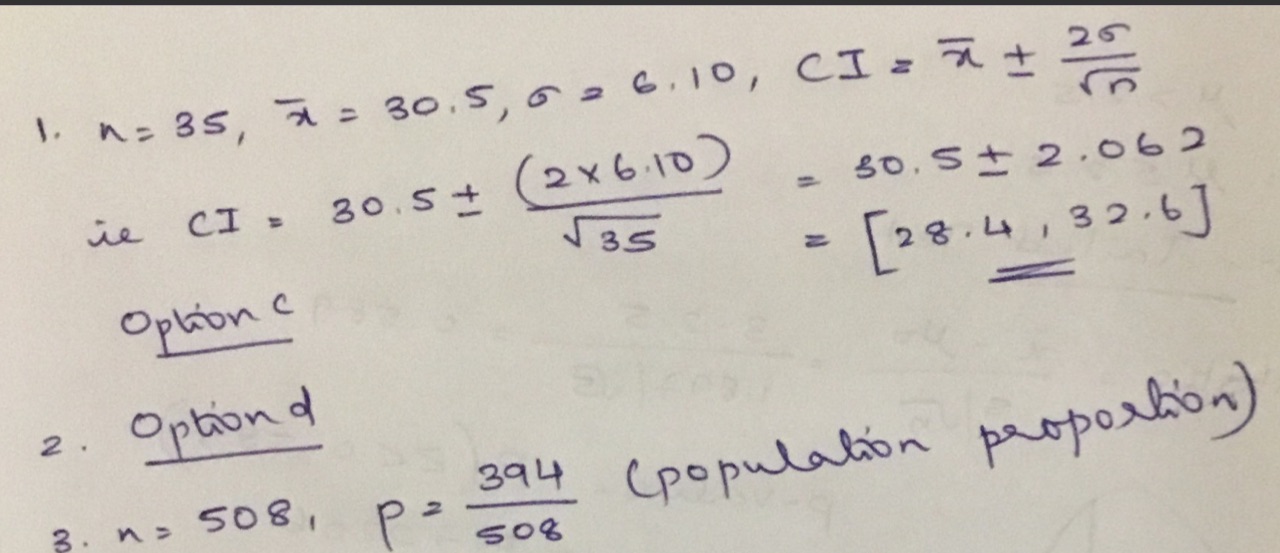 1. n = 35, x̄ = 30.5, σ = 6.10, CI = x̄ ± 2σ/√n
ie CI = 30.5 ± (2×6.10)/√35 = 30.5 ± 2.062
= [28.4, 32.6]
Option c
2. Option d
3. n = 508, p = 394/508 (population proportion)